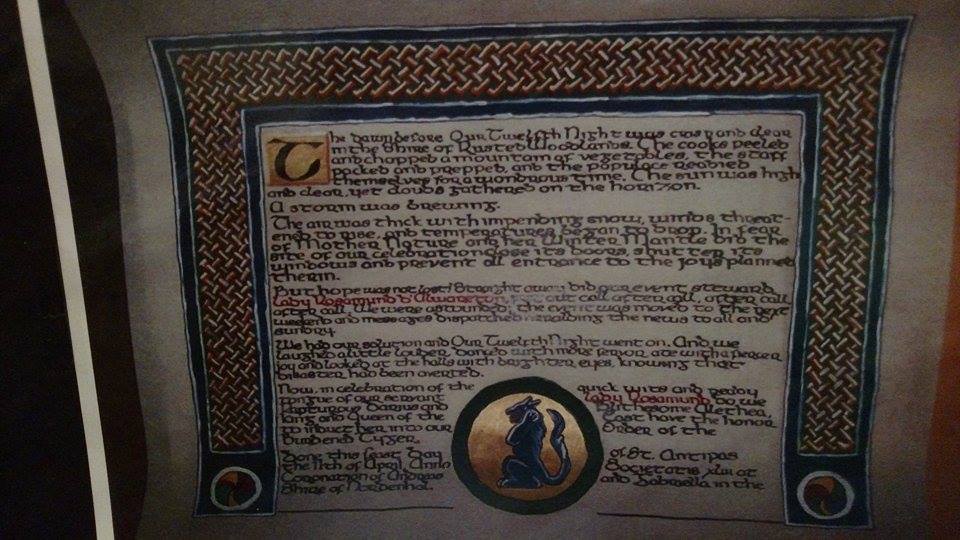 The dawn before Our Twelfth Night was crisp and clear
in the Shire of Rusted Woodlands. The cooks peeled
and chopped a mountain of vegetables, the staff
packed and prepped, and the populace readied
themselves for a wondrous time. The sun was high
and clear, yet clouds gathered on the horizon.
A storm was brewing.
The air was thick with impending snow, winds threat-
ened to rise, and temperatures began to drop. In fear
of Mother Nature and her Winter Mantle did the
site of our celebration close its doors, shutter its
windows and prevent all entrance to the joys planned
therin.
But hope was not lost! Straight away did our event steward
Lady Rosamund put out call after call, after call
after call. We were astounded, the event was moved to the next
weekend and messages dispatched heralding the news to all and
sundry.
We had our solution and Our Twelfth Night went on. And we
laughed a little louder, danced with more fervor, ate with a fiercer
joy and looked at the halls with brighter eyes, knowing that
disaster had been averted.
Now, in celebration of the quick wits and ready
tongue of our servant Lady Rosamund do we
Rapturous Darius and Blithesome Alethea,
King and Queen of the East have the honor
to induct her into our Order of the
Burdened Tyger.
Done this feast Day of St. Antipas
the 11th of April, Anno Societatis xliii at
Coronation of Andreas and Gabriella in the
Shire of Nordenhal.